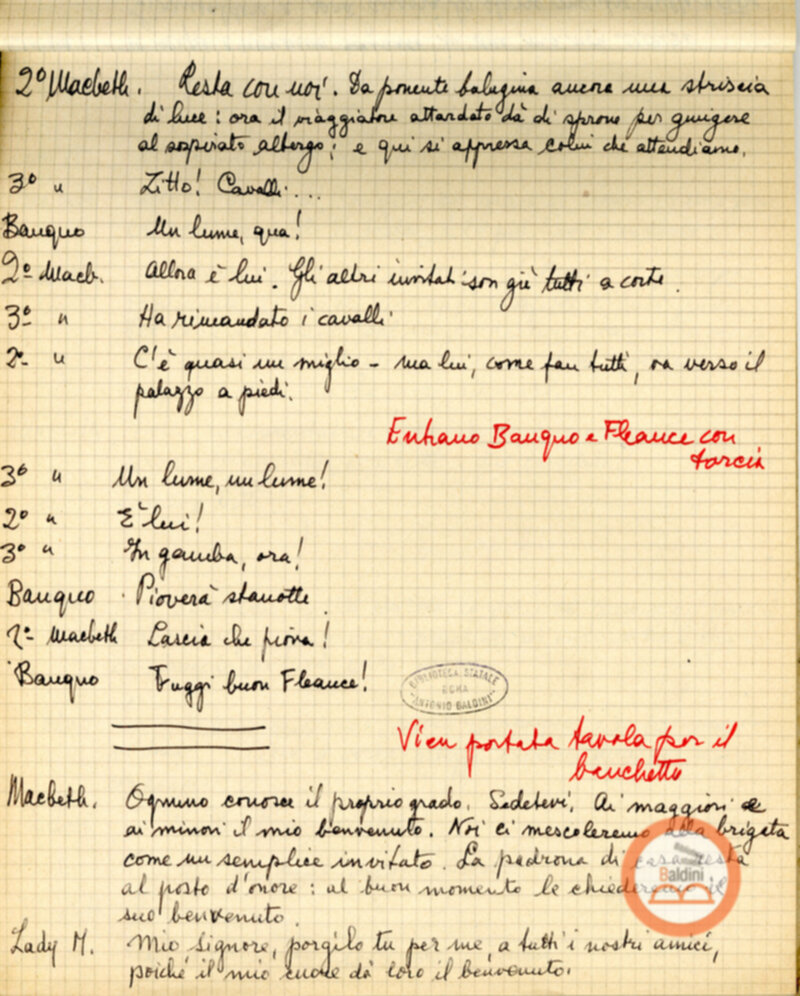 2º Macbeth. Resta con noi. Da ponente balugina ancora una striscia
di luce: ora il viaggiatore attardato dà di sprone per giungere
al sospirato albergo; e qui si appressa colui che attendiamo.
3º " Zitto! Cavalli...
Banquo Un lume, qua!
2º Macb. Allora è lui. Gli altri invitati son già tutti a corte.
3º " Ha rimandato i cavalli
2º " C'è quasi un miglio - ma lui, come fan tutti, va verso il
palazzo a piedi.
Entrano Banquo e Fleance con
torcia
3º " Un lume, un lume!
2º " È lui!
3º " In gamba, ora!
Banquo Pioverà stanotte
1º Macbeth Lascia che piova!
Banquo Fuggi buon Fleance!
BIBLIOTECA STATALE
ROMA
"ANTONIO BALDINI"
Vien portata tavola per il
banchetto
Macbeth. Ognuno conosce il proprio grado. Sedetevi. Ai maggiori e
ai minori il mio benvenuto. Noi ci mescoleremo alla brigata
come un semplice invitato. La padrona di casa resta
al posto d'onore: al buon momento le chiederemo il
suo benvenuto.
Baldini
Lady M. Mio signore, porgilo tu per me, a tutti i nostri amici,
poiché il mio cuore dà loro il benvenuto.